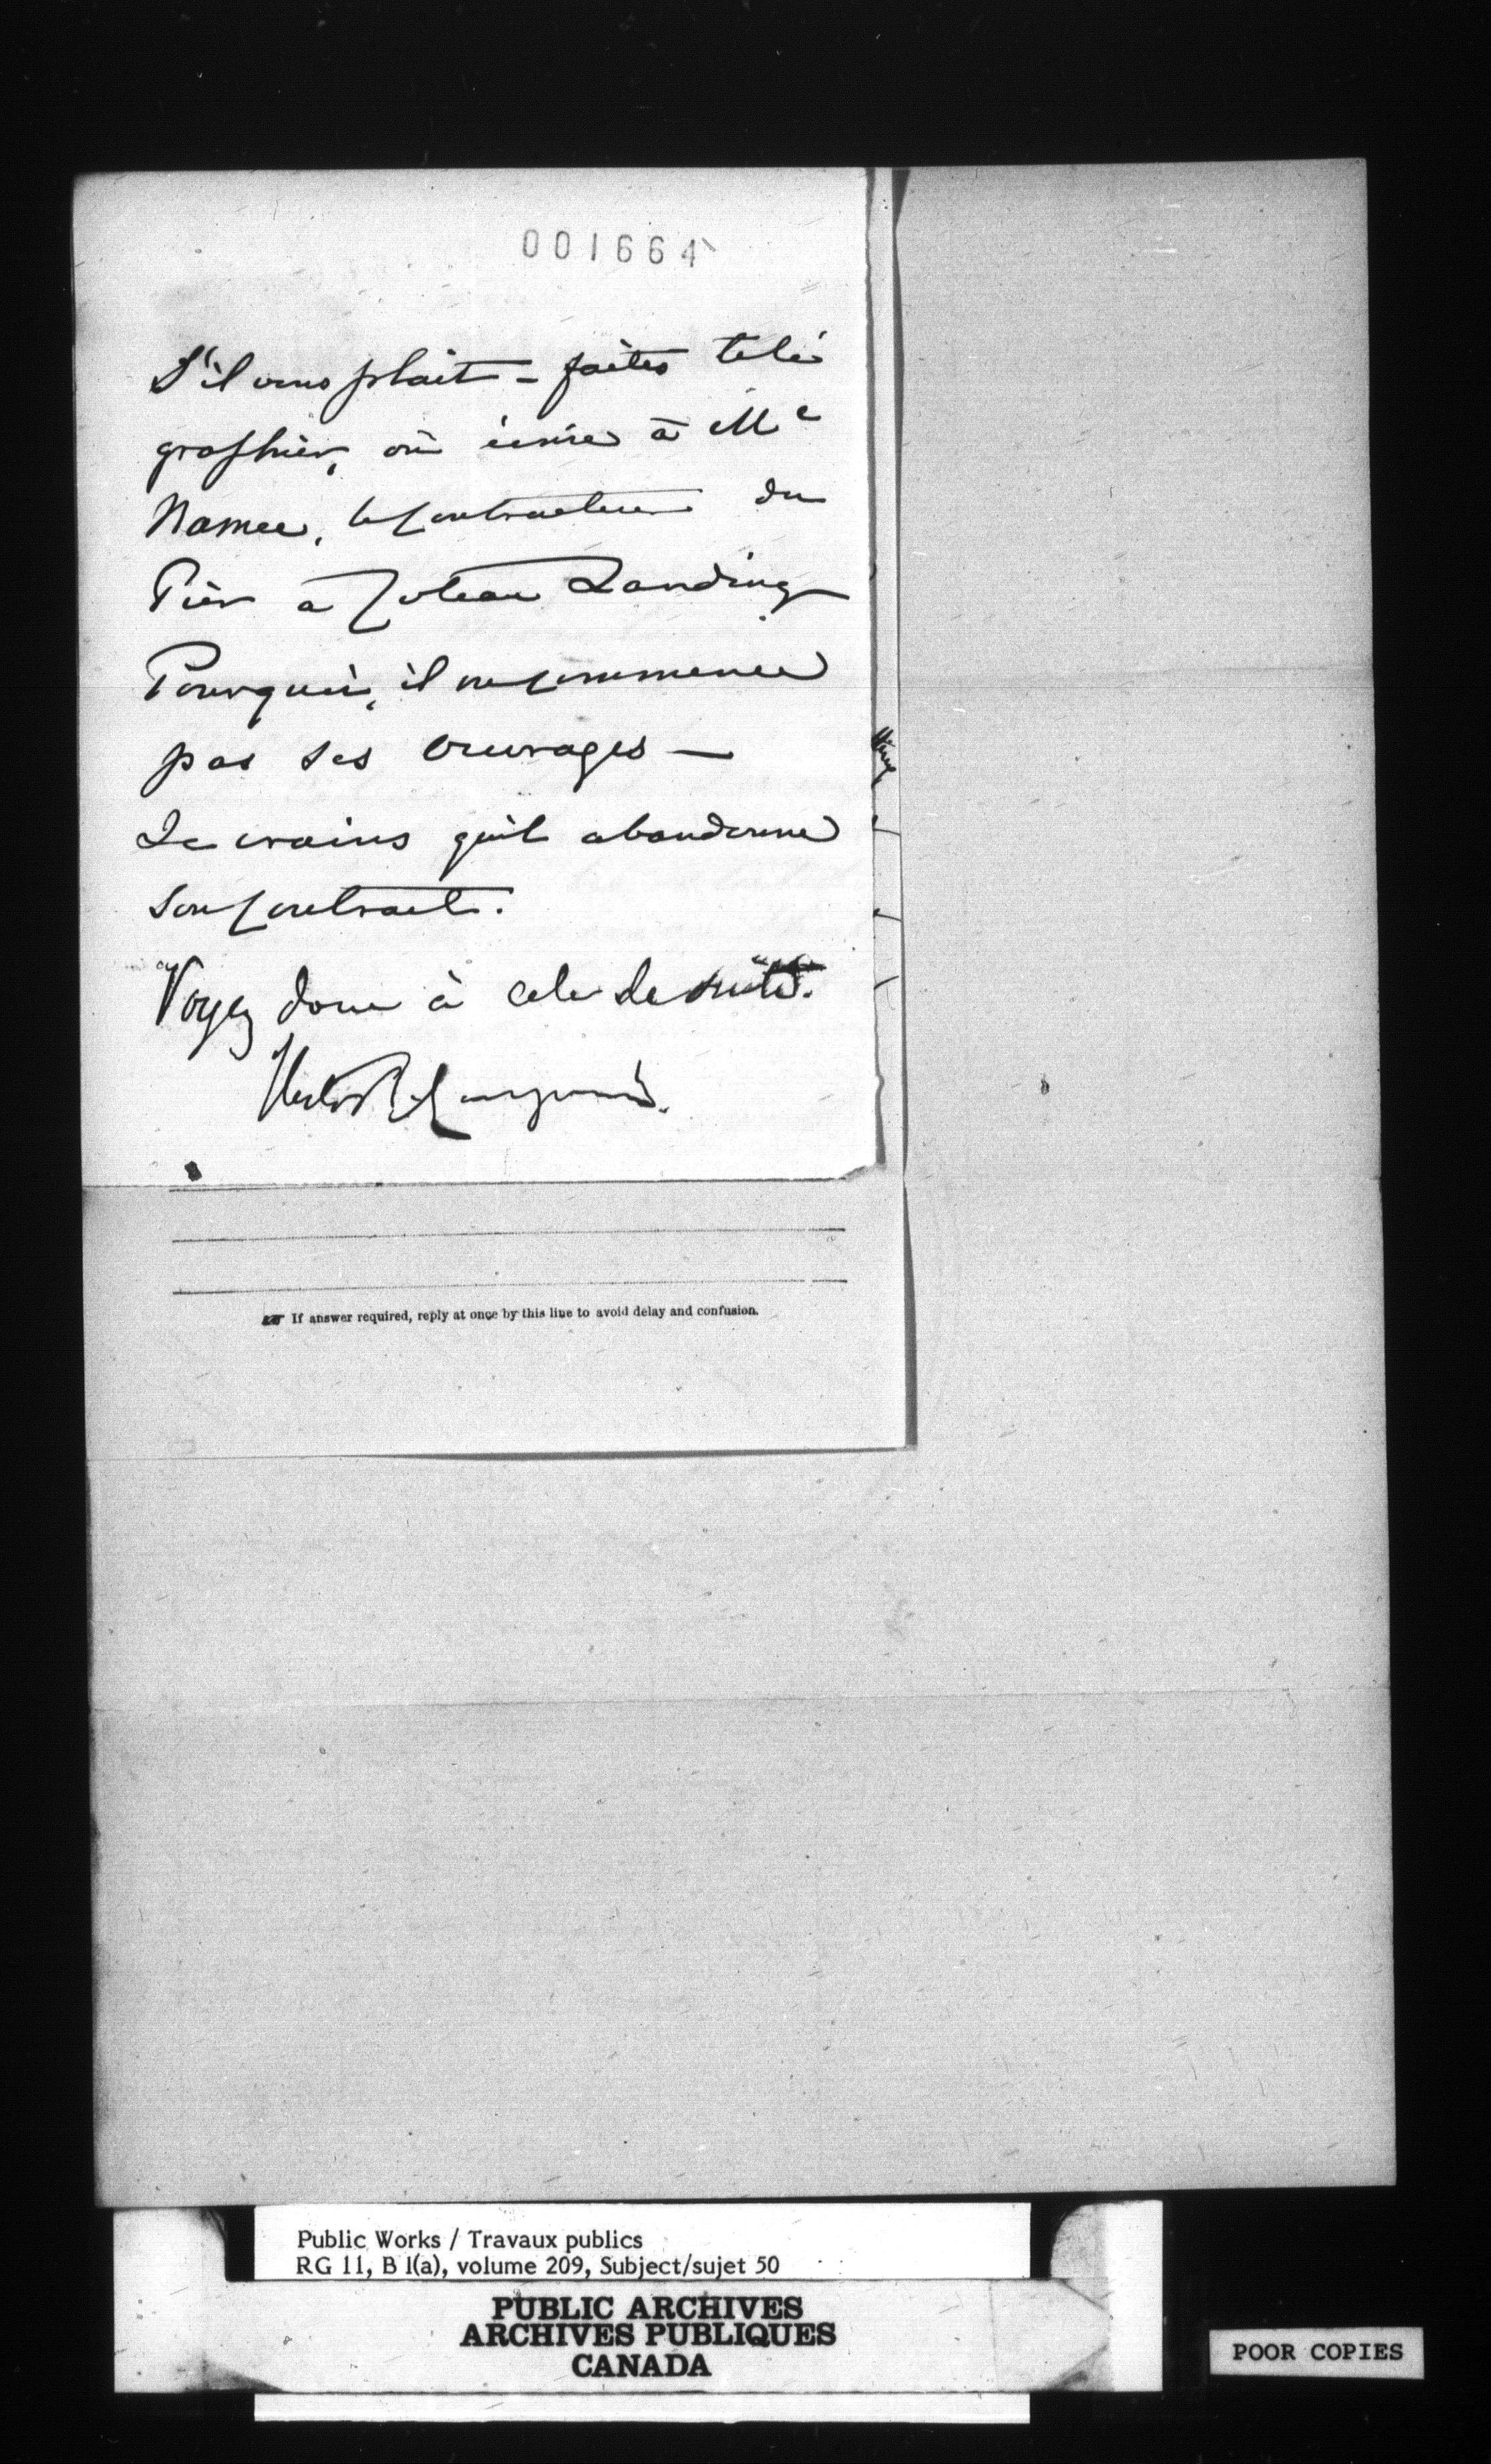 001664
S'il vous plait - faites télé
graphier, où écrire à Mc
Namee, le contracteur du
Pier à Coteau Landing
Pourquoi, il ne commence
pas ses ouvrages —
Je crains qu'il abandonne
son contract.
Voyez donc à cela de suite.
Hector L. Langevin.
☞ If answer required, reply at once by this line to avoid delay and confusion.
Public Works / Travaux publics
RG 11, B 1(a), volume 209, Subject/sujet 50
PUBLIC ARCHIVES
ARCHIVES PUBLIQUES
CANADA
POOR COPIES